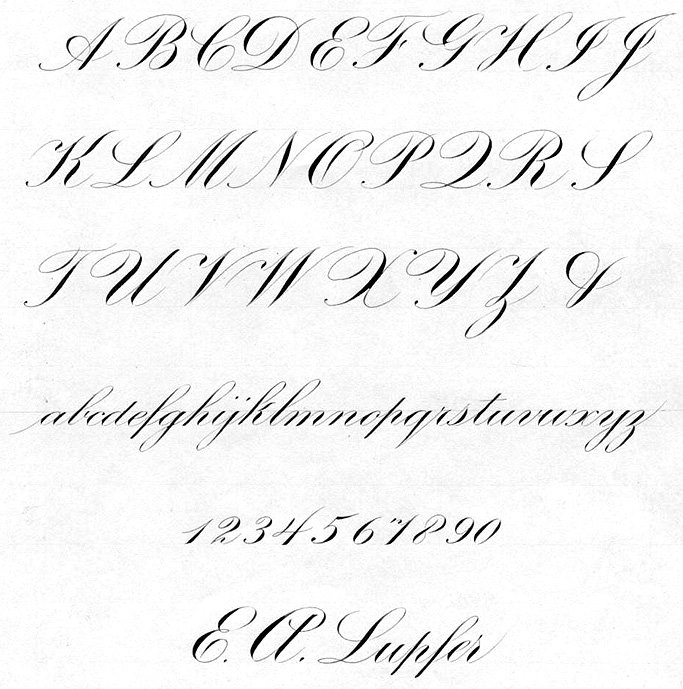 A B C D E F G H I J
K L M N O P Q R S
T U V W X Y Z &
abcdefghijklmnopqrstuvwxyz
1234567890
E. A. Lupfer